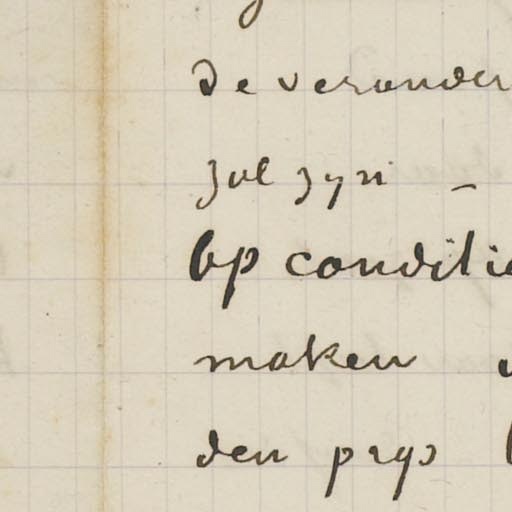 de verander
zal zyn –
Op conditie
maken
den prys